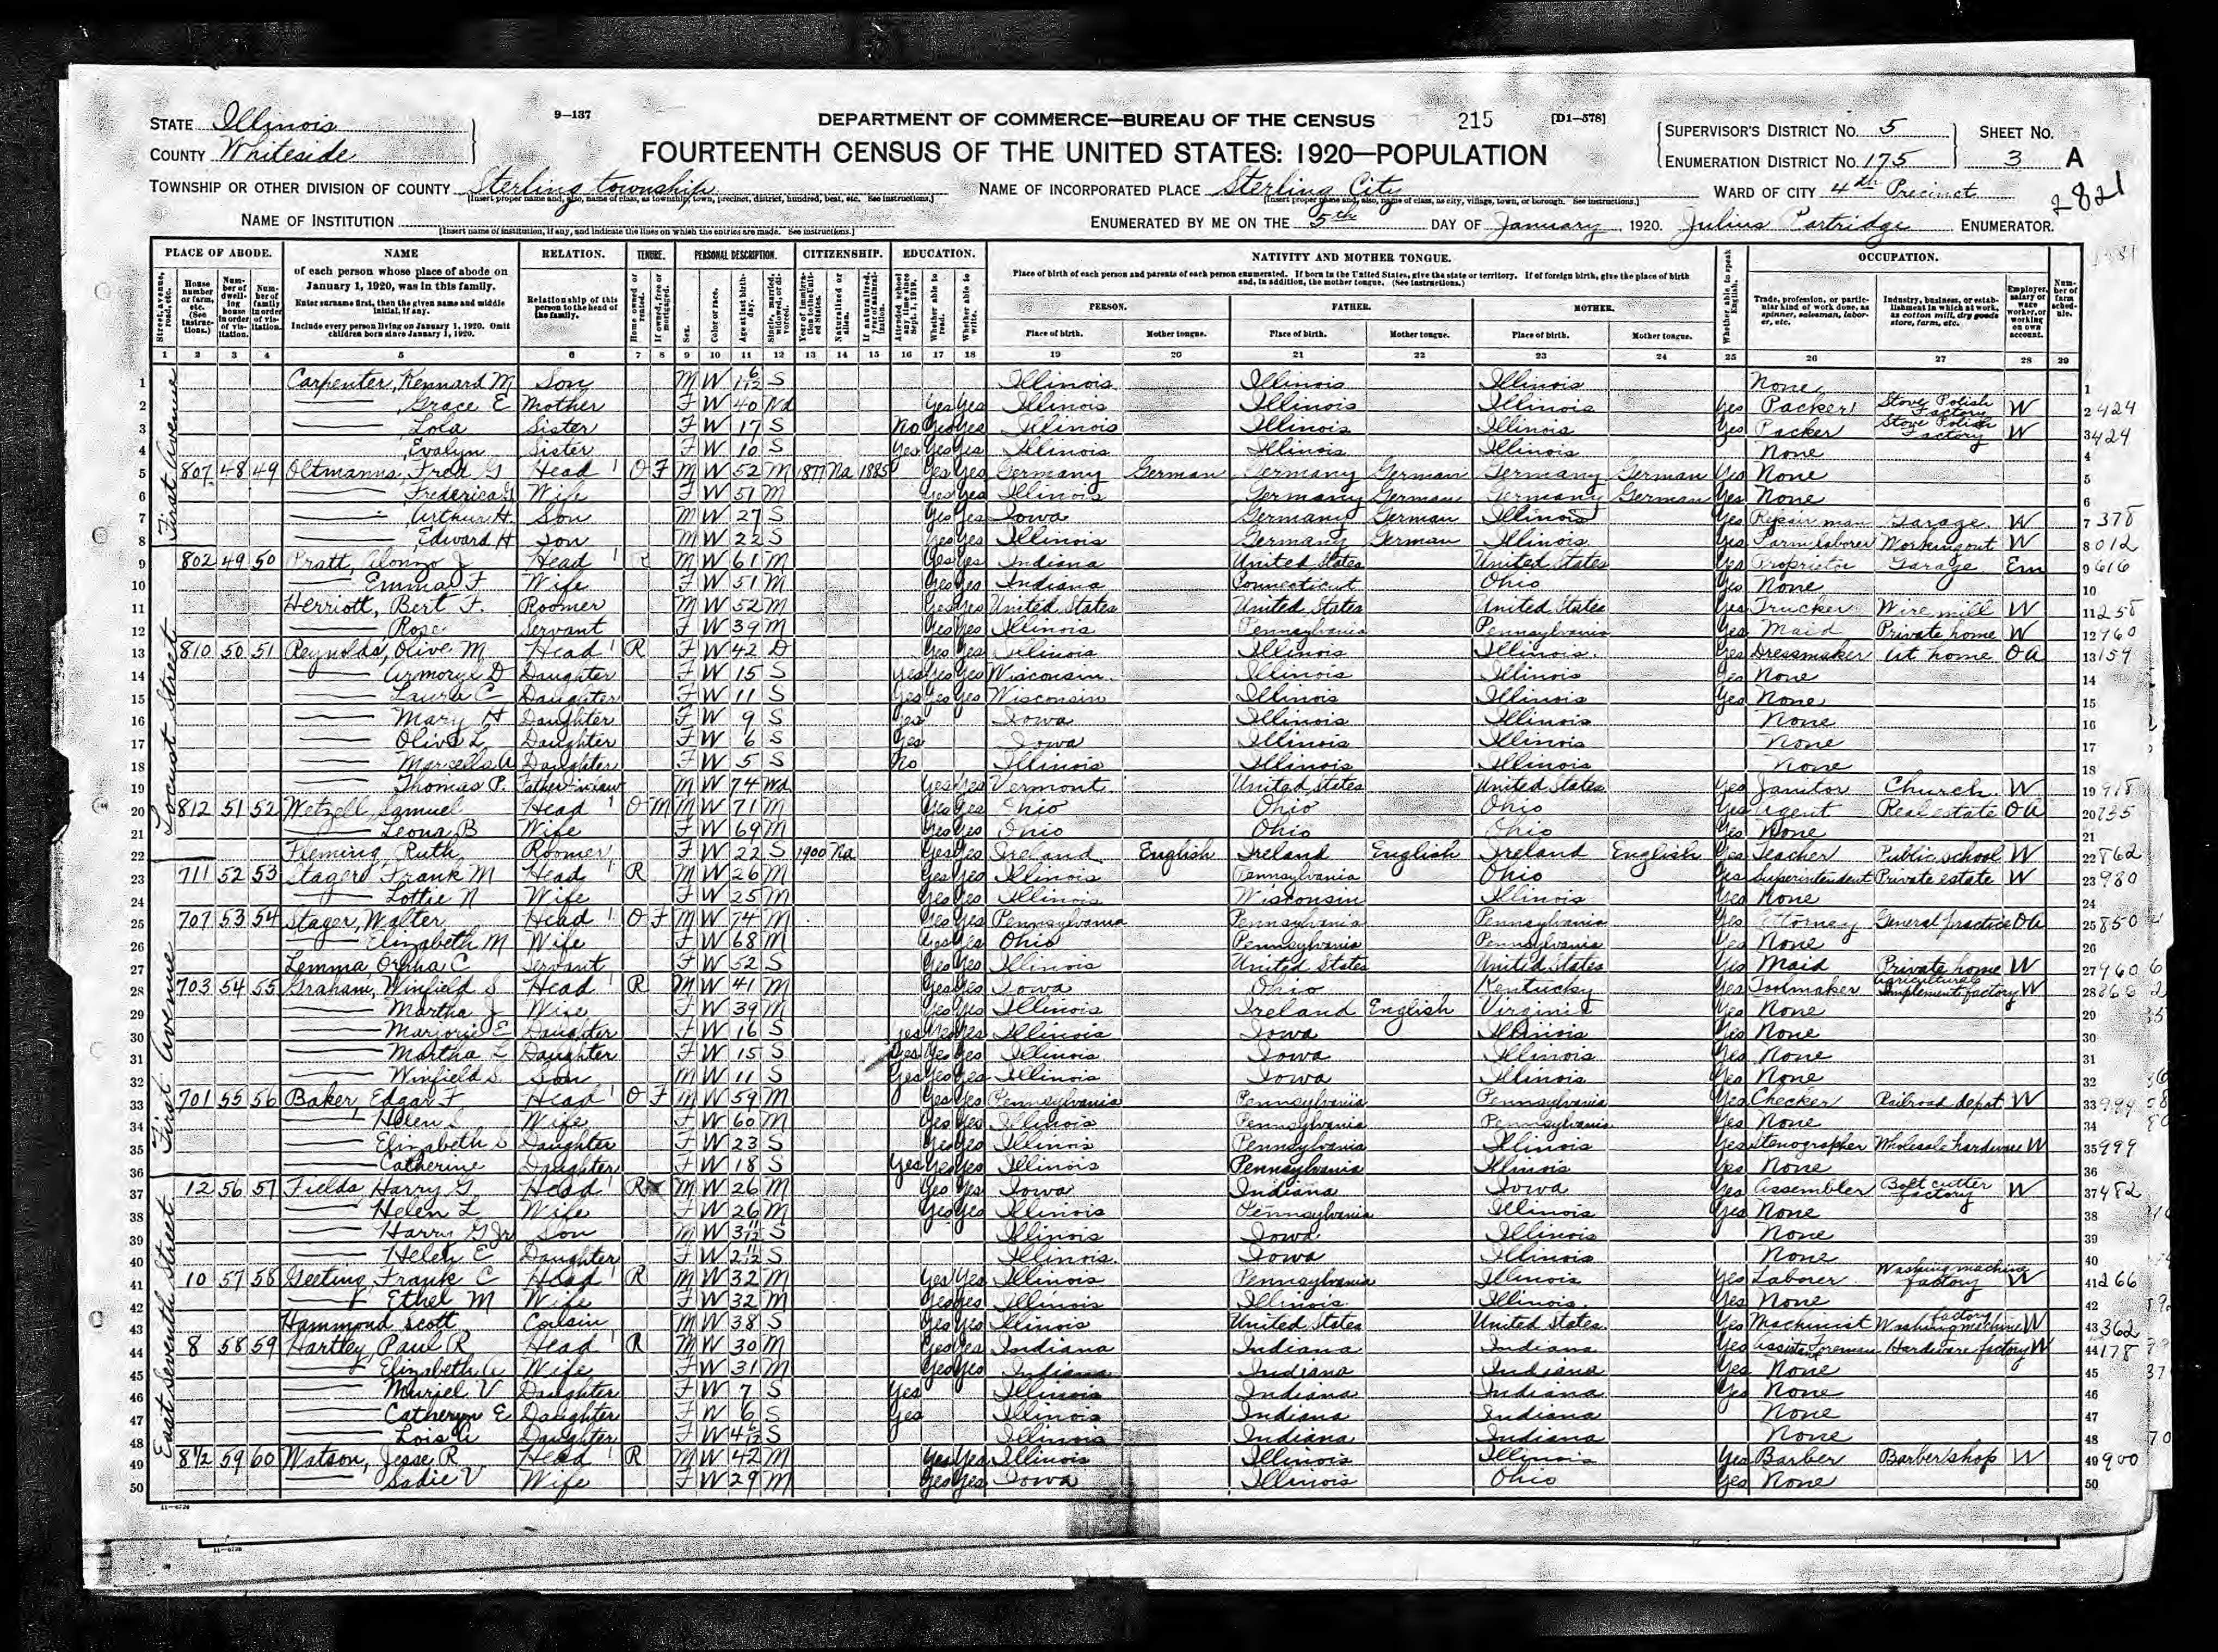 STATE Illinois
COUNTY Whiteside
9—137
DEPARTMENT OF COMMERCE—BUREAU OF THE CENSUS
215
[D1—578]
FOURTEENTH CENSUS OF THE UNITED STATES: 1920—POPULATION
SUPERVISOR'S DISTRICT NO. 5
ENUMERATION DISTRICT NO. 175
SHEET NO.
3 A
2821
TOWNSHIP OR OTHER DIVISION OF COUNTY Sterling township
[Insert proper name and, also, name of class, as township, town, precinct, district, hundred, beat, etc. See instructions.]
NAME OF INCORPORATED PLACE Sterling City
[Insert proper name and, also, name of class, as city, village, town, or borough. See instructions.]
WARD OF CITY 4th Precinct
NAME OF INSTITUTION
[Insert name of institution, if any, and indicate the lines on which the entries are made. See instructions.]
ENUMERATED BY ME ON THE 5th DAY OF January, 1920. Julius Partridge ENUMERATOR.
PLACE OF ABODE. NAME RELATION. TENURE. PERSONAL DESCRIPTION. CITIZENSHIP. EDUCATION. NATIVITY AND MOTHER TONGUE. OCCUPATION.
of each person whose place of abode on January 1, 1920, was in this family.
Enter surname first, then the given name and middle initial, if any.
Include every person living on January 1, 1920. Omit children born since January 1, 1920.
Relationship of this person to the head of the family.
Place of birth of each person and parents of each person enumerated. If born in the United States, give the state or territory. If of foreign birth, give the place of birth and, in addition, the mother tongue. (See instructions.)
PERSON. FATHER. MOTHER.
Place of birth. Mother tongue. Place of birth. Mother tongue. Place of birth. Mother tongue.
1 2 3 4 5 6 7 8 9 10 11 12 13 14 15 16 17 18 19 20 21 22 23 24 25 26 27 28 29
First Avenue
1 Carpenter, Kennard M Son M W 1 6/12 S Illinois Illinois Illinois None 1
2 — , Grace E Mother F W 40 Wd Yes Yes Illinois Illinois Illinois Yes Packer Stove Polish Factory W 2 424
3 — , Lola Sister F W 17 S No Yes Yes Illinois Illinois Illinois Yes Packer Stove Polish Factory W 3 424
4 — , Evalyn Sister F W 10 S Yes Yes Yes Illinois Illinois Illinois None 4
5 807 48 49 Oltmanns, Fred G Head 1 O F M W 52 M 1877 Na 1885 Yes Yes Germany German Germany German Germany German Yes None 5
6 — , Frederica Wife F W 51 M Yes Yes Illinois Germany German Germany German Yes None 6
7 — , Arthur H. Son M W 27 S Yes Yes Iowa Germany German Illinois Yes Repair man Garage W 7 378
8 — , Edward H Son M W 22 S Yes Yes Illinois Germany German Illinois Yes Farm laborer Working out W 8 012
Locust Street
9 802 49 50 Pratt, Alonzo J Head 1 R M W 61 M Yes Yes Indiana United States United States Yes Proprietor Garage Em 9 616
10 — Emma F Wife F W 51 M Yes Yes Indiana Connecticut Ohio Yes None 10
11 Herriott, Bert F. Roomer M W 52 M Yes Yes United States United States United States Yes Trucker Wire mill W 11 258
12 — Rose Servant F W 39 M Yes Yes Illinois Pennsylvania Pennsylvania Yes Maid Private home W 12 960
13 810 50 51 Reynolds, Olive M Head 1 R F W 42 D Yes Yes Illinois Illinois Illinois. Yes Dressmaker At home OA 13 159
14 — Armoryl D Daughter F W 15 S Yes Yes Yes Wisconsin Illinois Illinois Yes None 14
15 — Laura C Daughter F W 11 S Yes Yes Yes Wisconsin Illinois Illinois Yes None 15
16 — Mary H Daughter F W 9 S Yes Iowa Illinois Illinois None 16
17 — Olive L Daughter F W 6 S Yes Iowa Illinois Illinois None 17
18 — Marcella A Daughter F W 5 S No Illinois Illinois Illinois None 18
19 — Thomas P. Father in law M W 74 Wd Yes Yes Vermont United States United States Yes Janitor Church W 19 918
20 812 51 52 Wetzell, Samuel Head 1 O M M W 71 M Yes Yes Ohio Ohio Ohio Yes Agent Real estate OA 20 735
21 — Leona B Wife F W 69 M Yes Yes Ohio Ohio Ohio Yes None 21
22 Fleming, Ruth Roomer F W 22 S 1900 Na Yes Yes Ireland English Ireland English Ireland English Yes Teacher Public school W 22 862
First Avenue
23 711 52 53 Stager, Frank M Head 1 R M W 26 M Yes Yes Illinois Pennsylvania Ohio Yes Superintendent Private estate W 23 980
24 — Lottie N Wife F W 25 M Yes Yes Illinois Wisconsin Illinois Yes None 24
25 707 53 54 Stager, Walter Head 1 O F M W 74 M Yes Yes Pennsylvania Pennsylvania Pennsylvania Yes Attorney General practice OA 25 850
26 — Elizabeth M Wife F W 68 M Yes Yes Ohio Pennsylvania Pennsylvania Yes None 26
27 Lemma, Orpha C Servant F W 52 S Yes Yes Illinois United States United States Yes Maid Private home W 27 960
28 703 54 55 Graham, Winfield S Head 1 R M W 41 M Yes Yes Iowa Ohio Kentucky Yes Toolmaker Agricultural Implement factory W 28
29 — Martha J Wife F W 39 M Yes Yes Illinois Ireland English Virginia Yes None 29
30 — Marjorie E Daughter F W 16 S Yes Yes Yes Illinois Iowa Illinois Yes None 30
31 — Martha L Daughter F W 15 S Yes Yes Yes Illinois Iowa Illinois Yes None 31
32 — Winfield S. Son M W 11 S Yes Yes Yes Illinois Iowa Illinois Yes None 32
33 701 55 56 Baker, Edgar F Head 1 O F M W 59 M Yes Yes Pennsylvania Pennsylvania Pennsylvania Yes Checker Railroad depot W 33
34 — Helen S Wife F W 60 M Yes Yes Illinois Pennsylvania Pennsylvania Yes None 34
35 — Elizabeth S Daughter F W 23 S Yes Yes Illinois Pennsylvania Illinois Yes Stenographer Wholesale hardware W 35 999
36 — Catherine Daughter F W 18 S Yes Yes Yes Illinois Pennsylvania Illinois Yes None 36
East Seventh Street
37 12 56 57 Fields, Harry G Head 1 R M W 26 M Yes Yes Iowa Indiana Iowa Yes Assembler Bolt cutter factory W 37 482
38 — Helen L Wife F W 26 M Yes Yes Illinois Pennsylvania Illinois Yes None 38
39 — Harry G Jr Son M W 3 11/12 S Illinois Iowa Illinois None 39
40 — Helen E Daughter F W 2 11/12 S Illinois Iowa Illinois None 40
41 10 57 58 Geeting, Frank C Head 1 R M W 32 M Yes Yes Illinois Pennsylvania Illinois Yes Laborer Washing machine factory W 41 266
42 — Ethel M Wife F W 32 M Yes Yes Illinois Illinois Illinois. Yes None 42
43 Hammond Scott Cousin M W 38 S Yes Yes Illinois United States United States. Yes Machinist Washing machine factory W 43 362
44 8 58 59 Hartley, Paul R Head R M W 30 M Yes Yes Indiana Indiana Indiana Yes Assistant Foreman Hardware factory W 44 178
45 — Elizabeth A Wife F W 31 M Yes Yes Indiana Indiana Indiana Yes None 45
46 — Muriel V Daughter F W 7 S Yes Illinois Indiana Indiana Yes None 46
47 — Catheryn E Daughter F W 6 S Yes Illinois Indiana Indiana None 47
48 — Lois A Daughter F W 4 S Illinois Indiana Indiana None 48
49 8 1/2 59 60 Watson, Jesse R Head 1 R M W 42 M Yes Yes Illinois Illinois Illinois Yes Barber Barber shop W 49 900
50 — Sadie V Wife F W 29 M Yes Yes Iowa Illinois Ohio Yes None 50